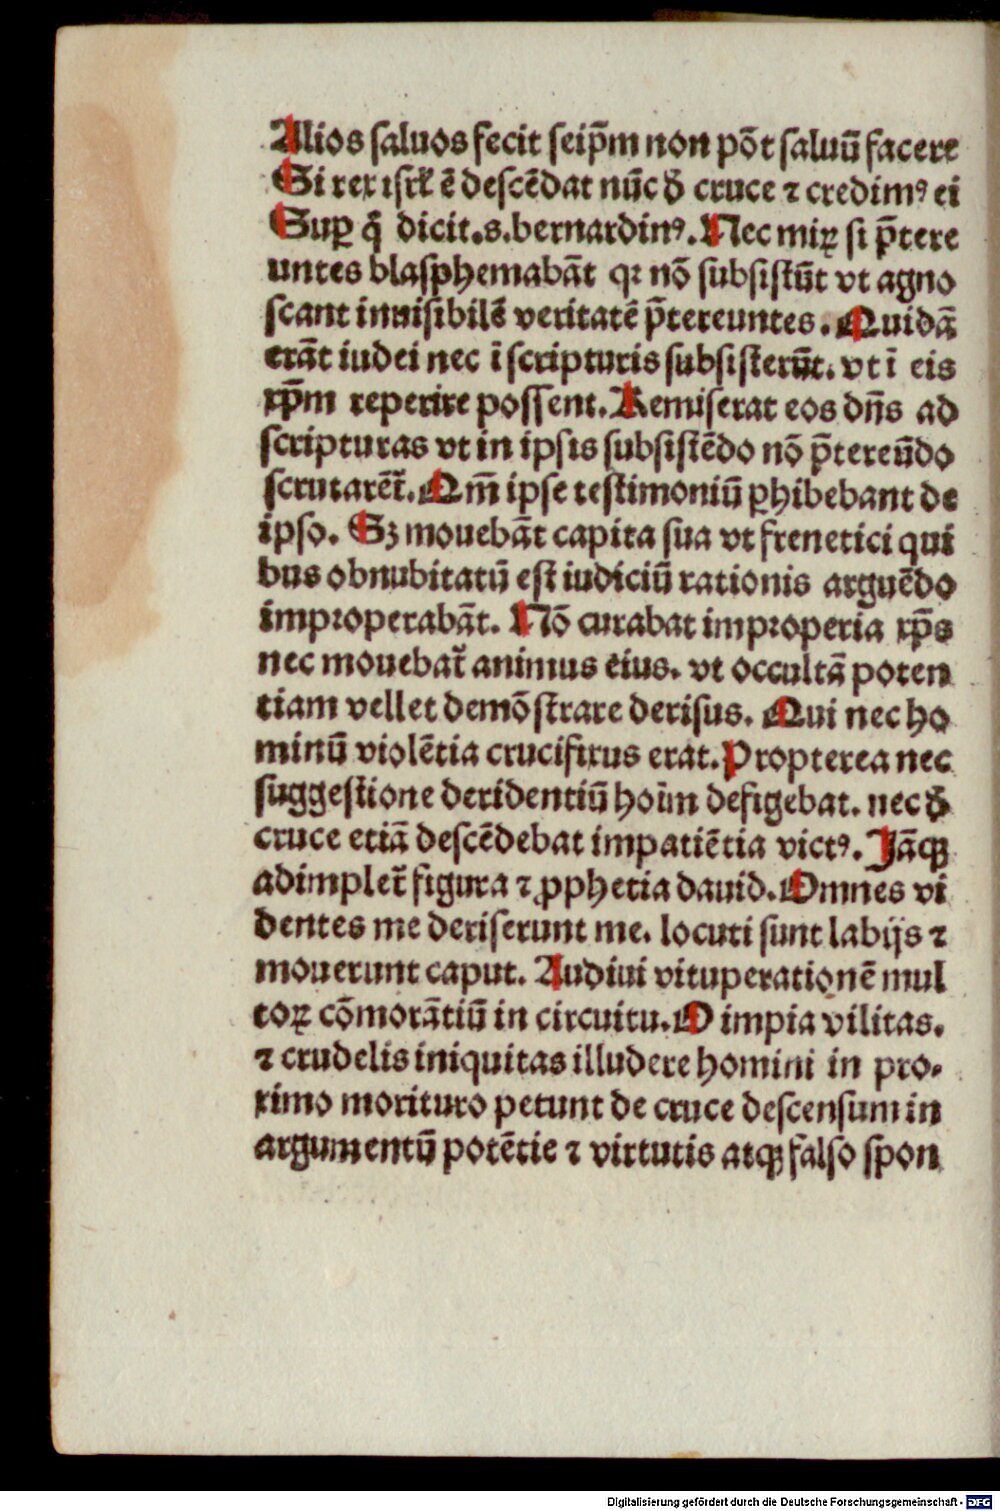 Alios saluos fecit seip̄m non põt saluũ facere
Si rex isrł ẽ descẽdat nũc đ cruce ⁊ credimꝰ ei
Suꝑ q̃ dicit.s.bernardinꝰ. Nec miꝝ si p̃tere
untes blasphemabãt qꝛ nõ subsistũt vt agno
scant inuisibilẽ veritatẽ p̃tereuntes. Quidã
erãt iudei nec ĩ scripturis subsisterũt. vt ĩ eis
xp̄m reperire possent. Remiserat eos dñs ad
scripturas vt in ipsis subsistẽdo nõ p̃tereũdo
scrutarẽt̃. Qm̃ ipse testimoniũ ꝑhibebant de
ipso. Sꝫ mouebãt capita sua vt frenetici qui
bus obnubitatũ est iudiciũ rationis arguẽdo
improperabãt. Nõ curabat improperia xp̄s
nec mouebat̃ animus eius. vt occultã poten
tiam vellet demõstrare derisus. Qui nec ho
minũ violẽtia crucifixus erat. Propterea nec
suggestione deridentiũ hoĩm defigebat. nec đ
cruce etiã descẽdebat impatiẽtia victꝰ. Jãqꝫ
adimplet̃ figura ⁊ ꝓphetia dauid. Omnes vi
dentes me deriserunt me. locuti sunt labijs ⁊
mouerunt caput. Audiui vituperationẽ mul
toꝝ cõmorãtiũ in circuitu. O impia vilitas.
⁊ crudelis iniquitas illudere homini in pro-
ximo morituro petunt de cruce descensum in
argumentũ potẽtie ⁊ virtutis atqꝫ falso spon
Digitalisierung gefördert durch die Deutsche Forschungsgemeinschaft - DFG